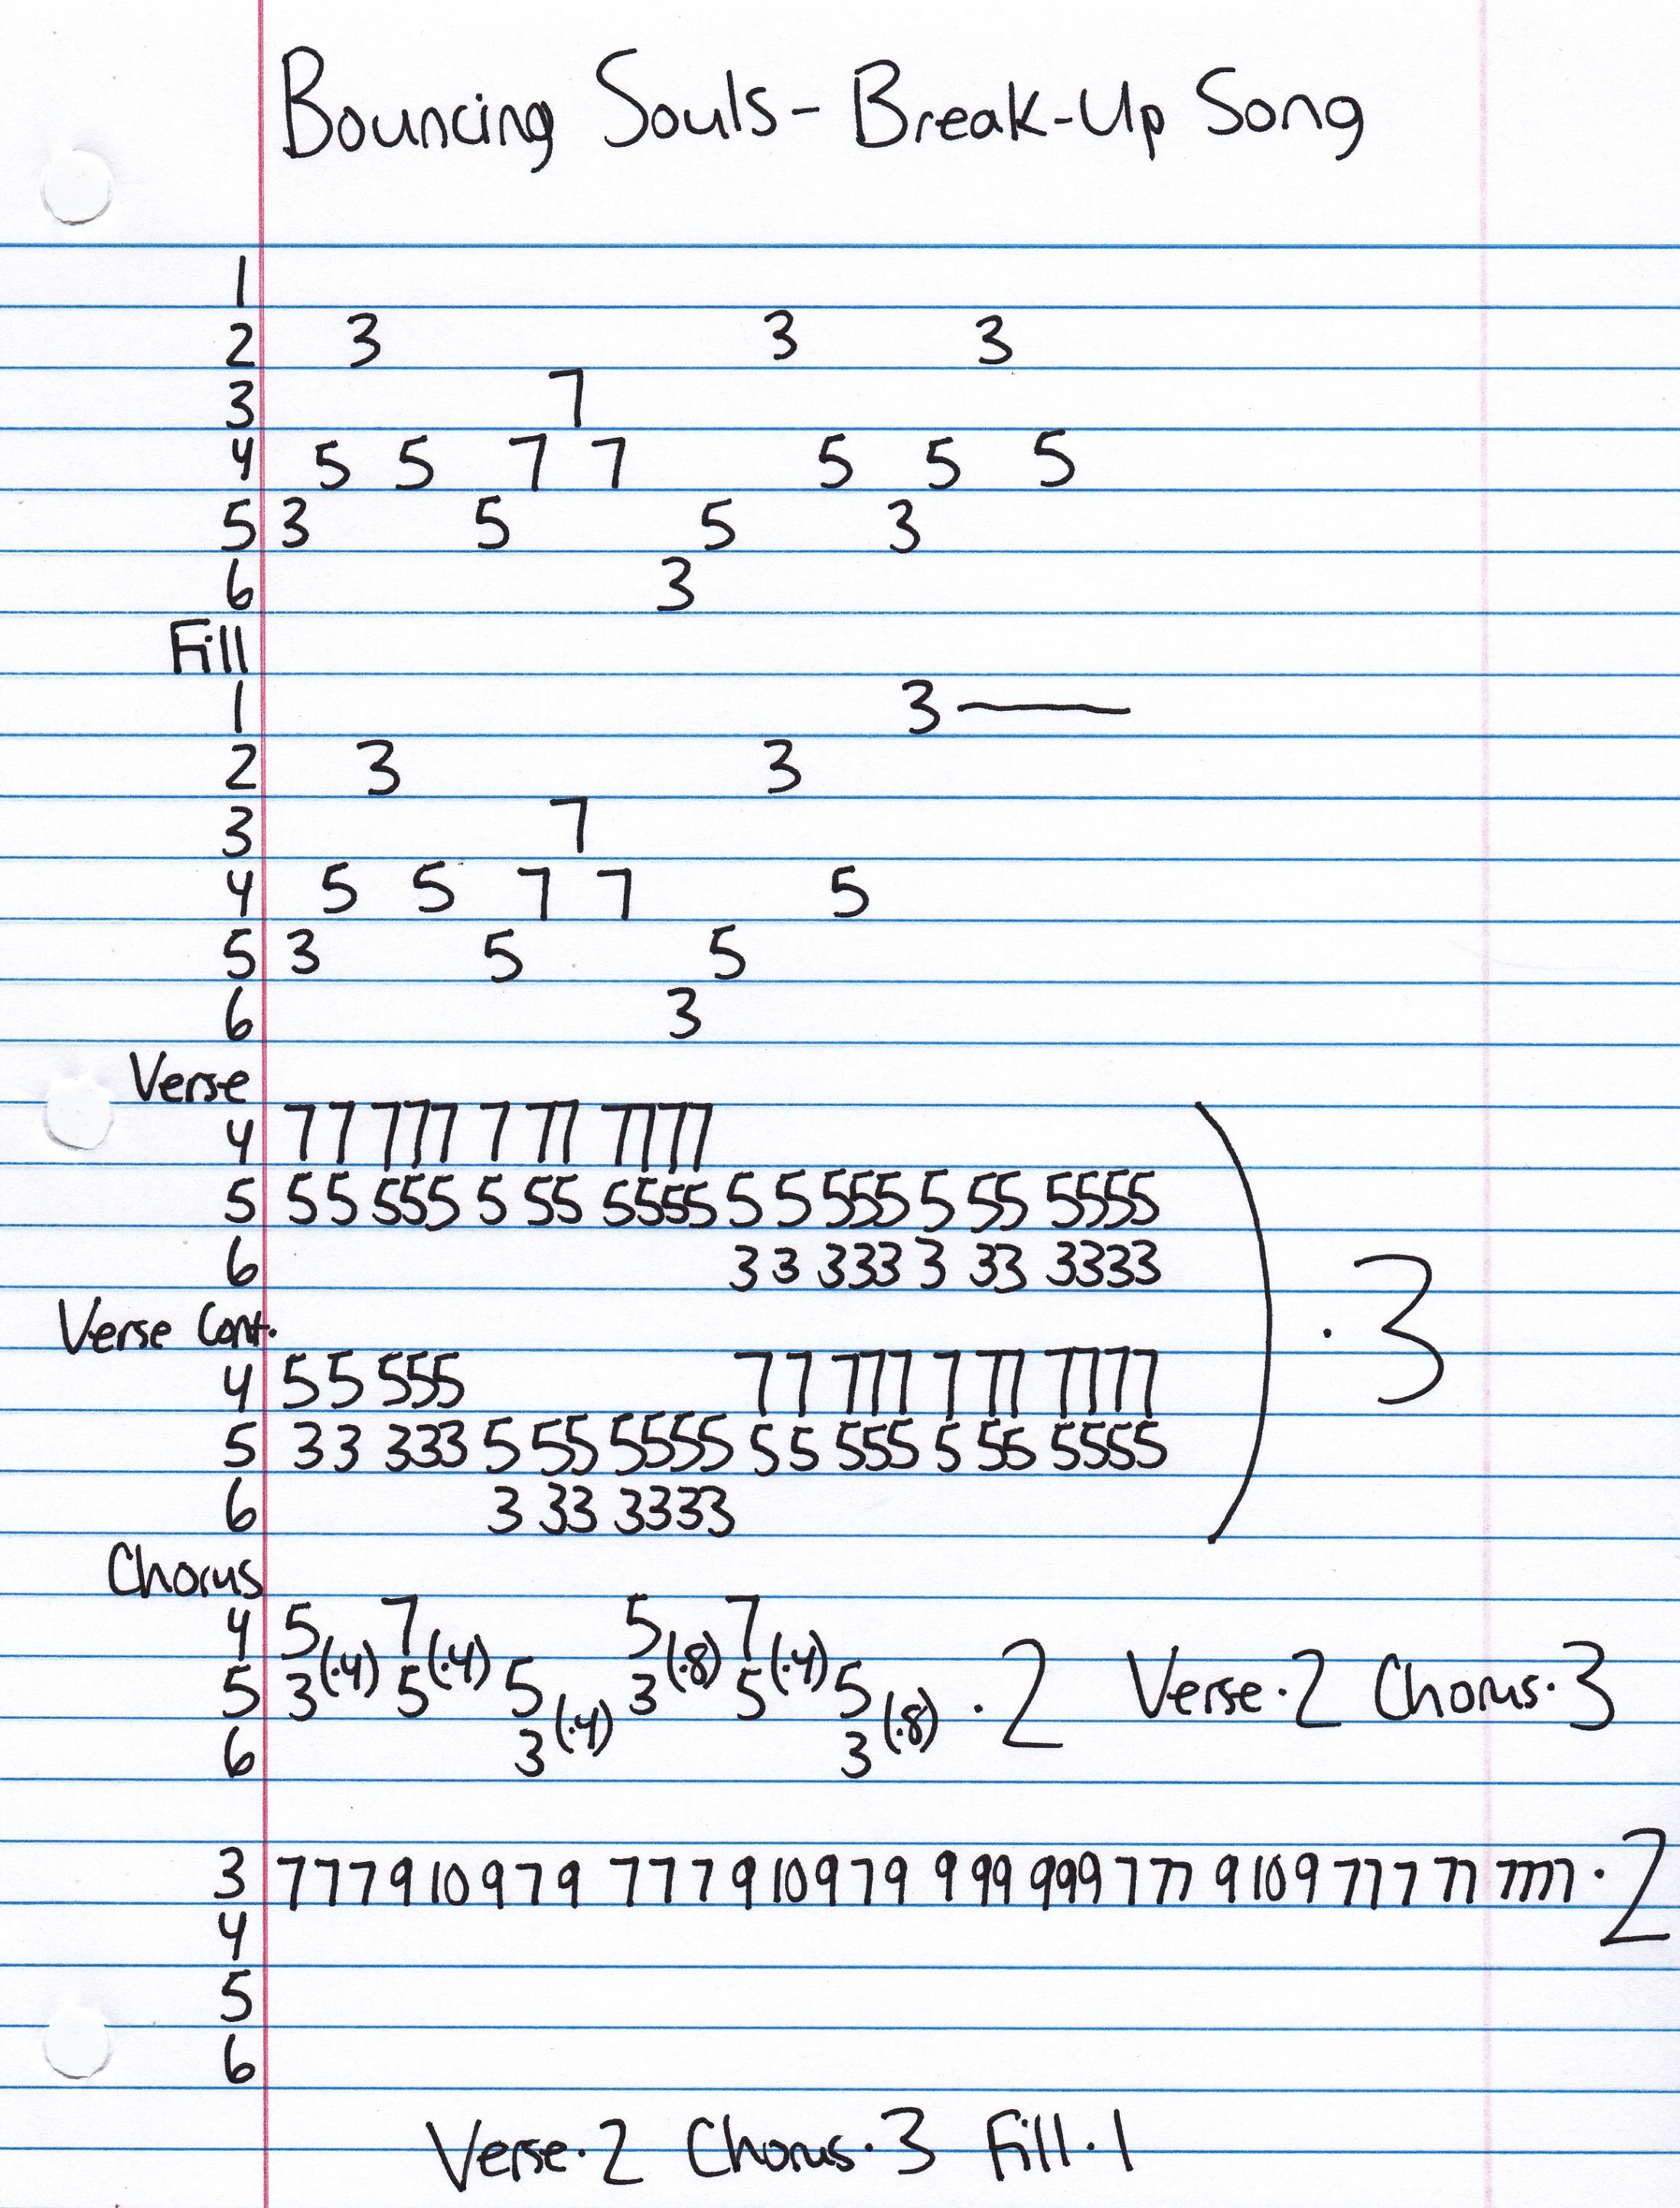 Bouncing Souls - Break-Up Song
1
2 3 3 3
3 7
4 5 5 7 7 5 5 5
5 3 5 5 3
6 3
Fill
1 3 —
2 3 3
3 7
4 5 5 7 7 5
5 3 5 5
6 3
Verse
4 7 7 777 7 77 7777
5 5 5 555 5 55 5555 5 5 555 5 55 5555
6 3 3 333 3 33 3333
· 3
Verse Cont.
4 5 5 555 7 7 777 7 77 7777
5 3 3 333 5 55 5555 5 5 555 5 55 5555
6 3 33 3333
Chorus
4 5 7 5 7
(·4) (·4) (·8) (·4)
5 3 5 5 3 5 5 · 2 Verse · 2 Chorus · 3
(·4) (·8)
6 3 3
3 7 7 7 9 10 9 7 9 7 7 7 9 10 9 7 9 9 99 999 7 77 9 10 9 77 7 77 7777 · 2
4
5
6
Verse · 2 Chorus · 3 Fill · 1